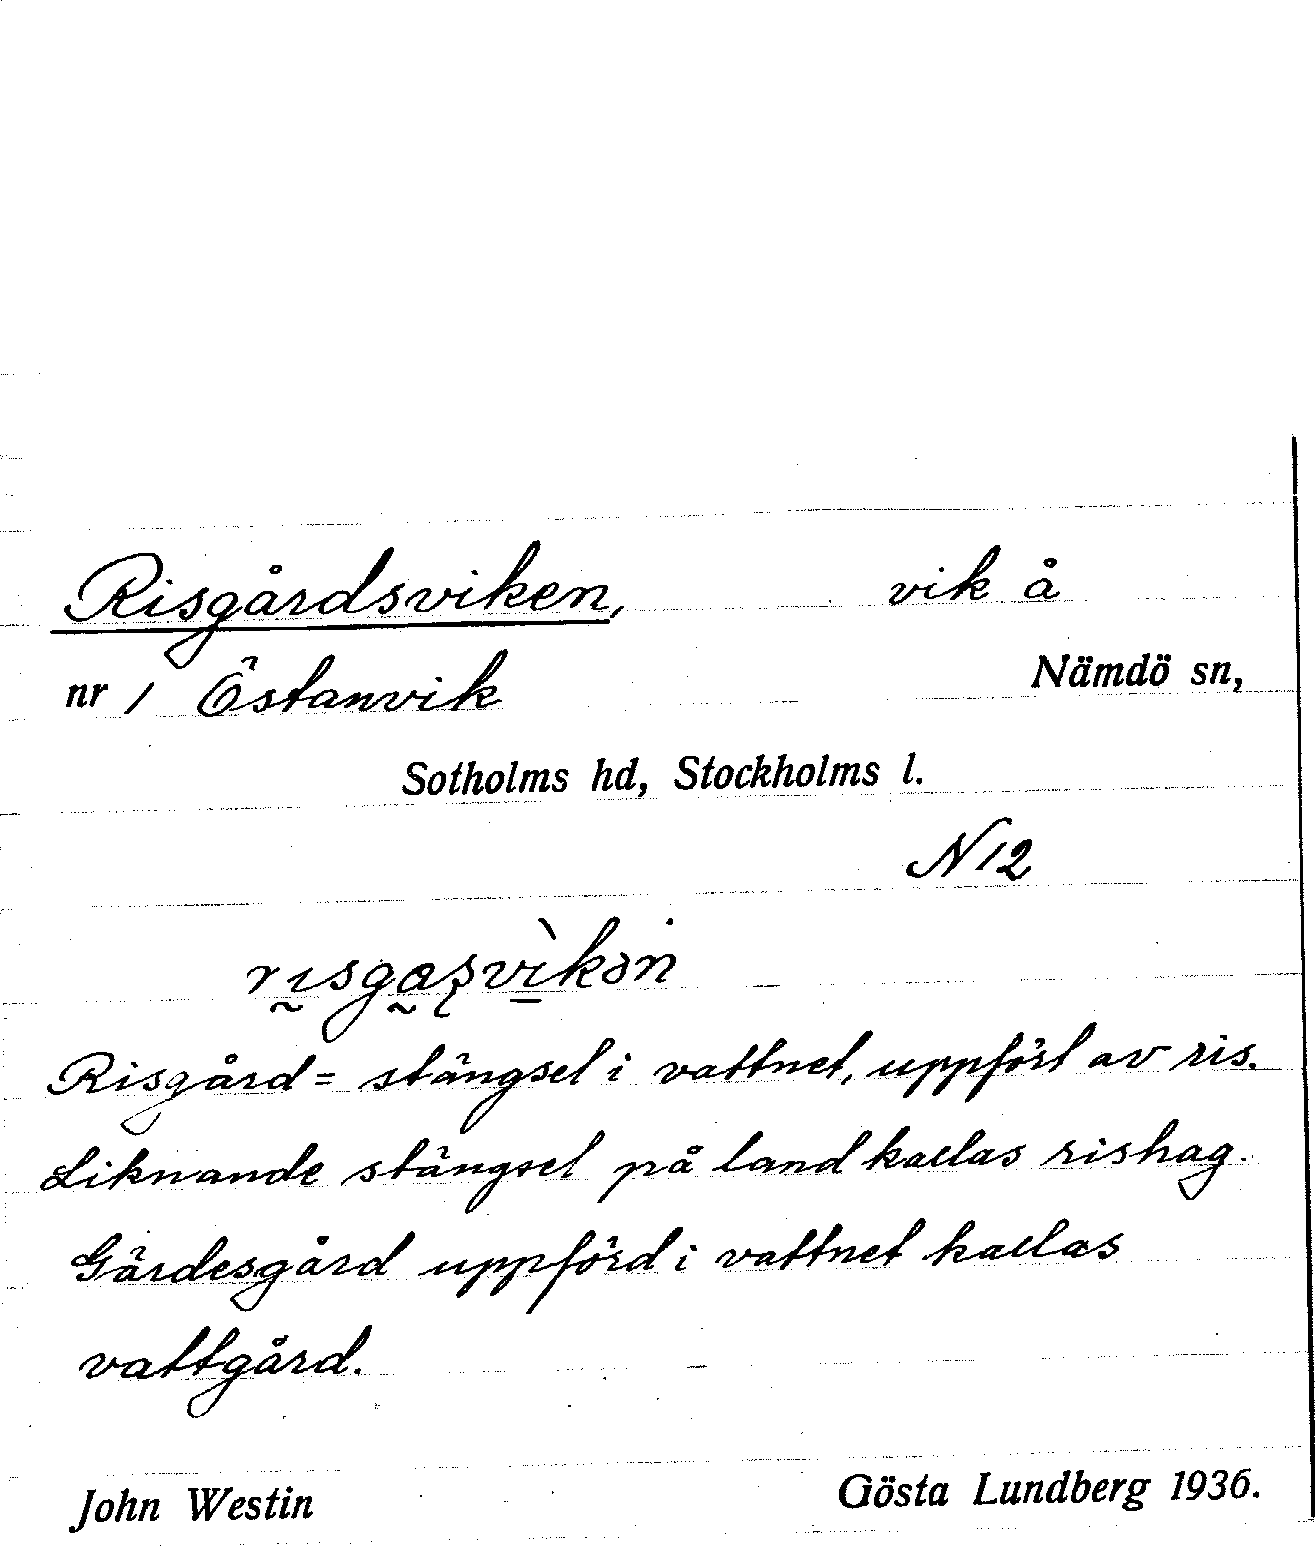 Risgårdsviken, vik å
nr 1 Östanvik Nämdö sn,
Sotholms hd, Stockholms l.
N 12
rı̰sga̰ʂvı̠̀kən
Risgård = stängsel i vattnet, uppfört av ris.
Liknande stängsel på land kallas rishag.
Gärdesgård uppförd i vattnet kallas
vattgård.
John Westin Gösta Lundberg 1936.